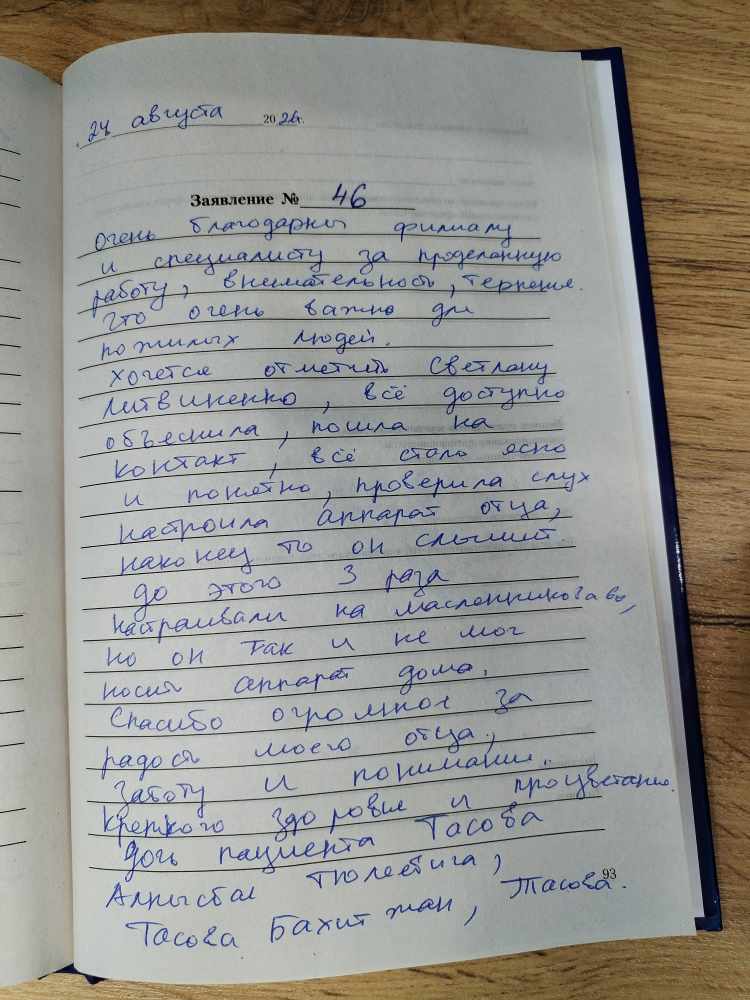 24 августа 2026г.
Заявление № 46
Очень благодарны филиалу
и специалисту за проделанную
работу, внимательность, терпение.
Это очень важно для
пожилых людей.
Хочется отметить Светлану
Литвиненко, всё доступно
объяснила, пошла на
контакт, всё стало ясно
и понятно, проверила слух
настроила аппарат отца,
наконец то он слышит.
до этого 3 раза
настраивали на масленникова
но он так и не мог
носить аппарат дома.
Спасибо огромное за
радость моего отца,
заботу и понимание.
Крепкого здоровья и процветания.
Дочь пациента Тасова
Алпысбая
Тасова Бахитжан, Тасова.
93